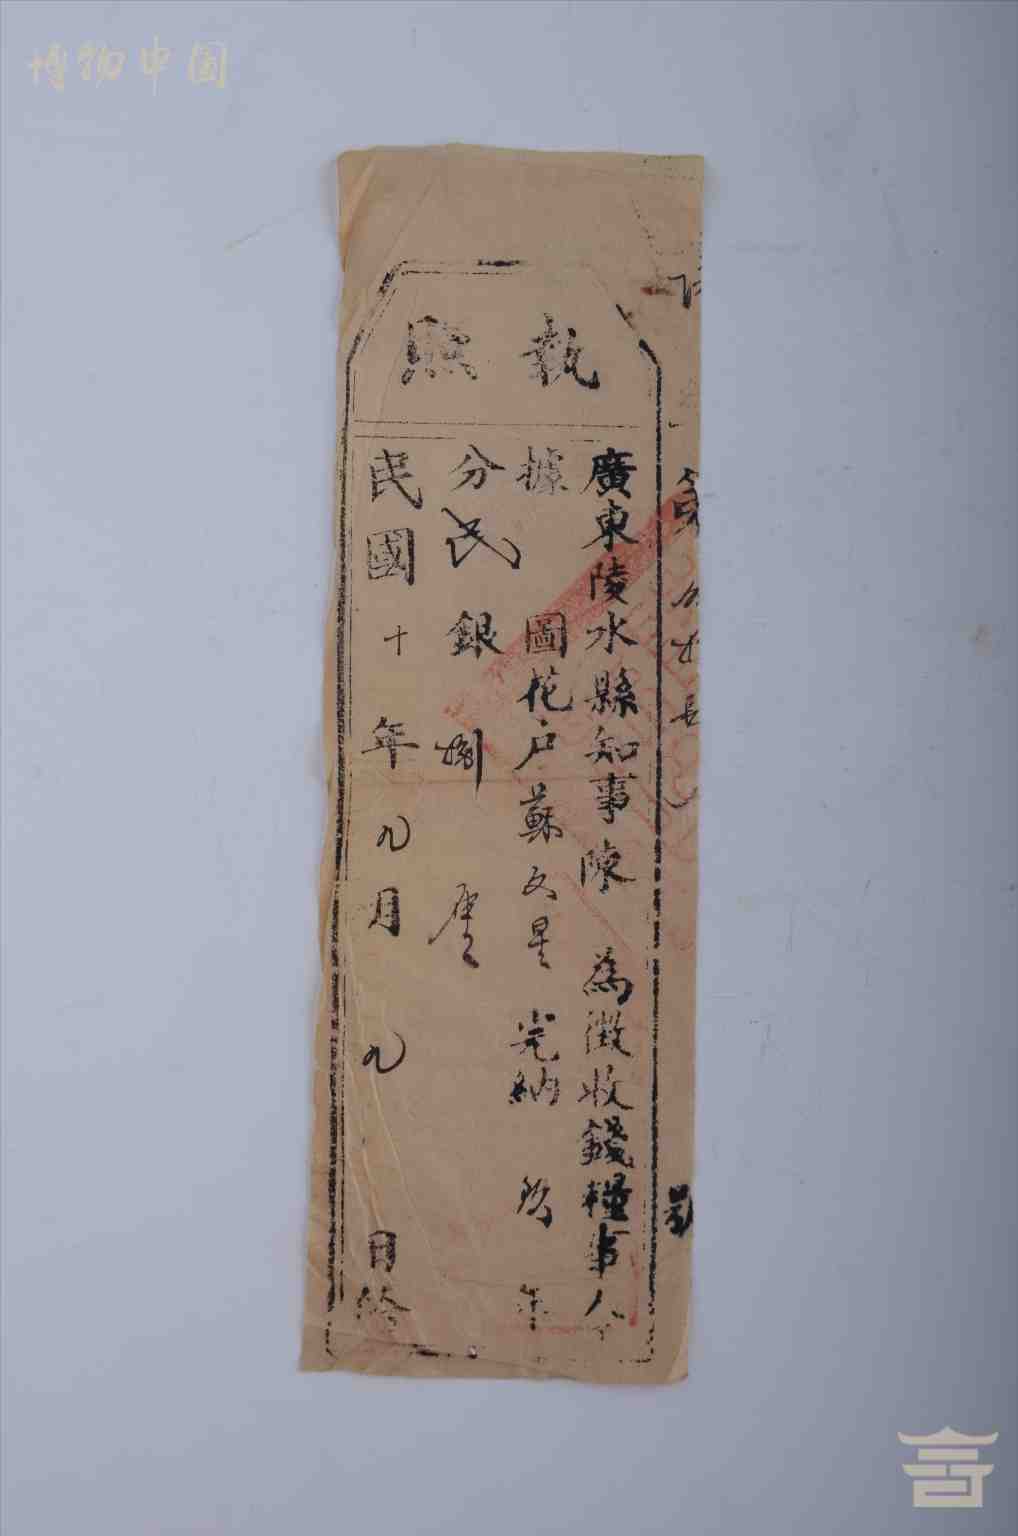 博物中国
執照
廣東陵水縣知事陳 為徵收錢糧事今
據 圖花户蘇文星 完納 年
分民銀捌 厘
民國十年九月九日給
號